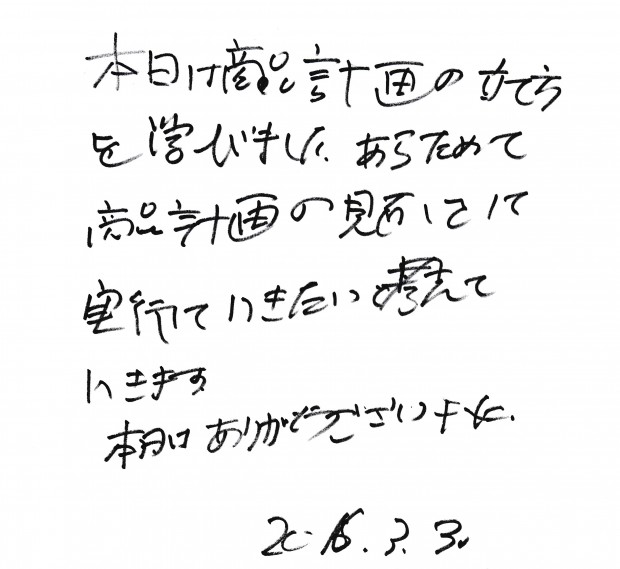 本日は商品計画の立て方
を学びました。あらためて
商品計画の見直しをして
実行していきたいと考えて
いきます
本日はありがとうございました。
2016.3.3.